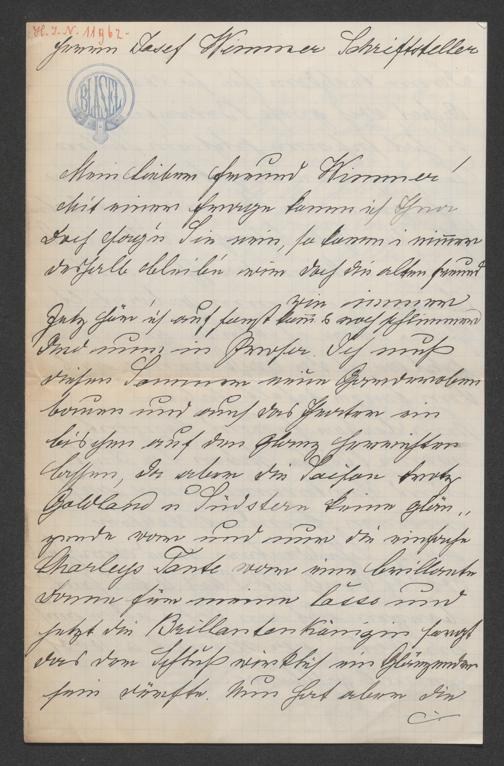 H. I. N. 11962-
Herrn Josef Wimmer Schriftsteller
BLASEL
Mein lieber Freund Wimmer!
Mit einer Frage komm ich
Doch sag'n Sie nein, so komm i nimmer
deshalb bleib'n wir doch die alten Freund
wie immer
Jetz hör' ich auf sonst kommts noch schlimmer
Und nun in Prosa. Ich muß
diesen Sommer neue Garderoben
bauen und auch das Theater ein
bischen auf den Glanz herrichten
lassen, da aber die Saison trotz
Goldland u Südstern keine glän„
zende war und nur die einfache
Charleys Tante war eine brillante
Dame für meine Casse und
jetzt die Brillantenkönigin sorgt
das der Schluß wirklich ein Glänzender
sein dürfte. Nun hat aber die